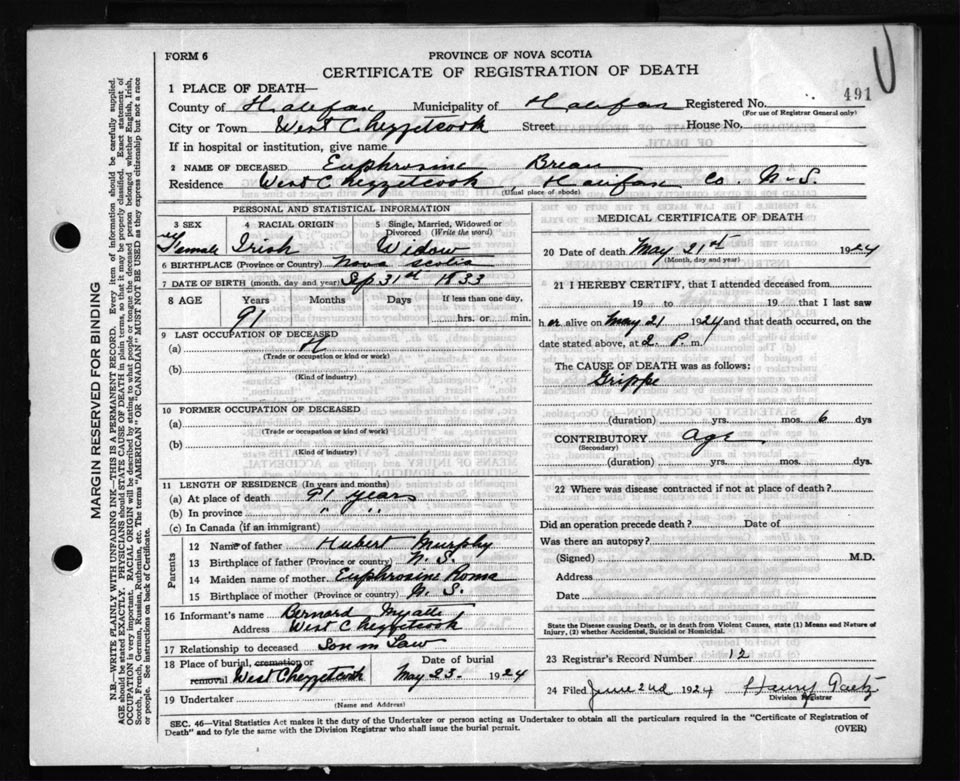 FORM 6
PROVINCE OF NOVA SCOTIA
CERTIFICATE OF REGISTRATION OF DEATH
1 PLACE OF DEATH—
County of Halifax Municipality of Halifax Registered No. 491
(For use of Registrar General only)
City or Town West Chezzetcook Street House No.
If in hospital or institution, give name
2 NAME OF DECEASED Euphrosine Breau
Residence West Chezzetcook Halifax Co. N-S.
(Usual place of abode)
PERSONAL AND STATISTICAL INFORMATION
3 SEX 4 RACIAL ORIGIN 5 Single, Married, Widowed or Divorced (Write the word)
Female Irish Widow
6 BIRTHPLACE (Province or Country) Nova Scotia
7 DATE OF BIRTH (month, day and year) Sep 31st 1833
8 AGE Years Months Days If less than one day,
91 hrs. or min.
9 LAST OCCUPATION OF DECEASED
(a) H
(Trade or occupation or kind or work)
(b)
(Kind of industry)
10 FORMER OCCUPATION OF DECEASED
(a)
(Trade or occupation or kind or work)
(b)
(Kind of industry)
11 LENGTH OF RESIDENCE (In years and months)
(a) At place of death 91 years
(b) In province " "
(c) In Canada (if an immigrant)
Parents
12 Name of father Hubert Murphy
13 Birthplace of father (Province or country) N. S.
14 Maiden name of mother Euphrosine Roma
15 Birthplace of mother (Province or country) N. S.
16 Informant's name Bernard Myatte
Address West Chezzetcook
17 Relationship to deceased Son in Law
18 Place of burial, cremation or removal West Chezzetcook Date of burial May 23. 1924
19 Undertaker
(Name and Address)
MEDICAL CERTIFICATE OF DEATH
20 Date of death May 21st 1924
(Month, day and year)
21 I HEREBY CERTIFY, that I attended deceased from
19 to 19 that I last saw
her alive on May 21 1924 and that death occurred, on
date stated above, at 2. P. m.
The CAUSE OF DEATH was as follows:
Grippe
(duration) yrs. mos. 6 dys
CONTRIBUTORY Age
(Secondary)
(duration) yrs. mos. dys.
22 Where was disease contracted if not at place of death?
Did an operation precede death? Date of
Was there an autopsy?
(Signed) M.D.
Address
Date
State the Disease causing Death, or in death from Violent Causes, state (1) Means and Nature of Injury, (2) whether Accidental, Suicidal or Homicidal.
23 Registrar's Record Number 12
24 Filed June 2nd 1924 Harry Gaetz
Division Registrar
SEC. 46—Vital Statistics Act makes it the duty of the Undertaker or person acting as Undertaker to obtain all the particulars required in the "Certificate of Registration of
Death" and to fyle the same with the Division Registrar who shall issue the burial permit. (OVER)
MARGIN RESERVED FOR BINDING
N.B.—WRITE PLAINLY WITH UNFADING INK—THIS IS A PERMANENT RECORD. Every item of information should be carefully supplied.
AGE should be stated EXACTLY. PHYSICIANS should STATE CAUSE OF DEATH in plain terms, so that it may be properly classified. Exact statement of
OCCUPATION is very important. RACIAL ORIGIN will be described by stating to what people or tongue the deceased person belonged whether English, Irish,
Scotch, French, German, Russian, Ruthenian, etc. The terms "AMERICAN" OR "CANADIAN" MUST NOT BE USED as they express citizenship but not a race
or people. See instructions on back of Certificate.